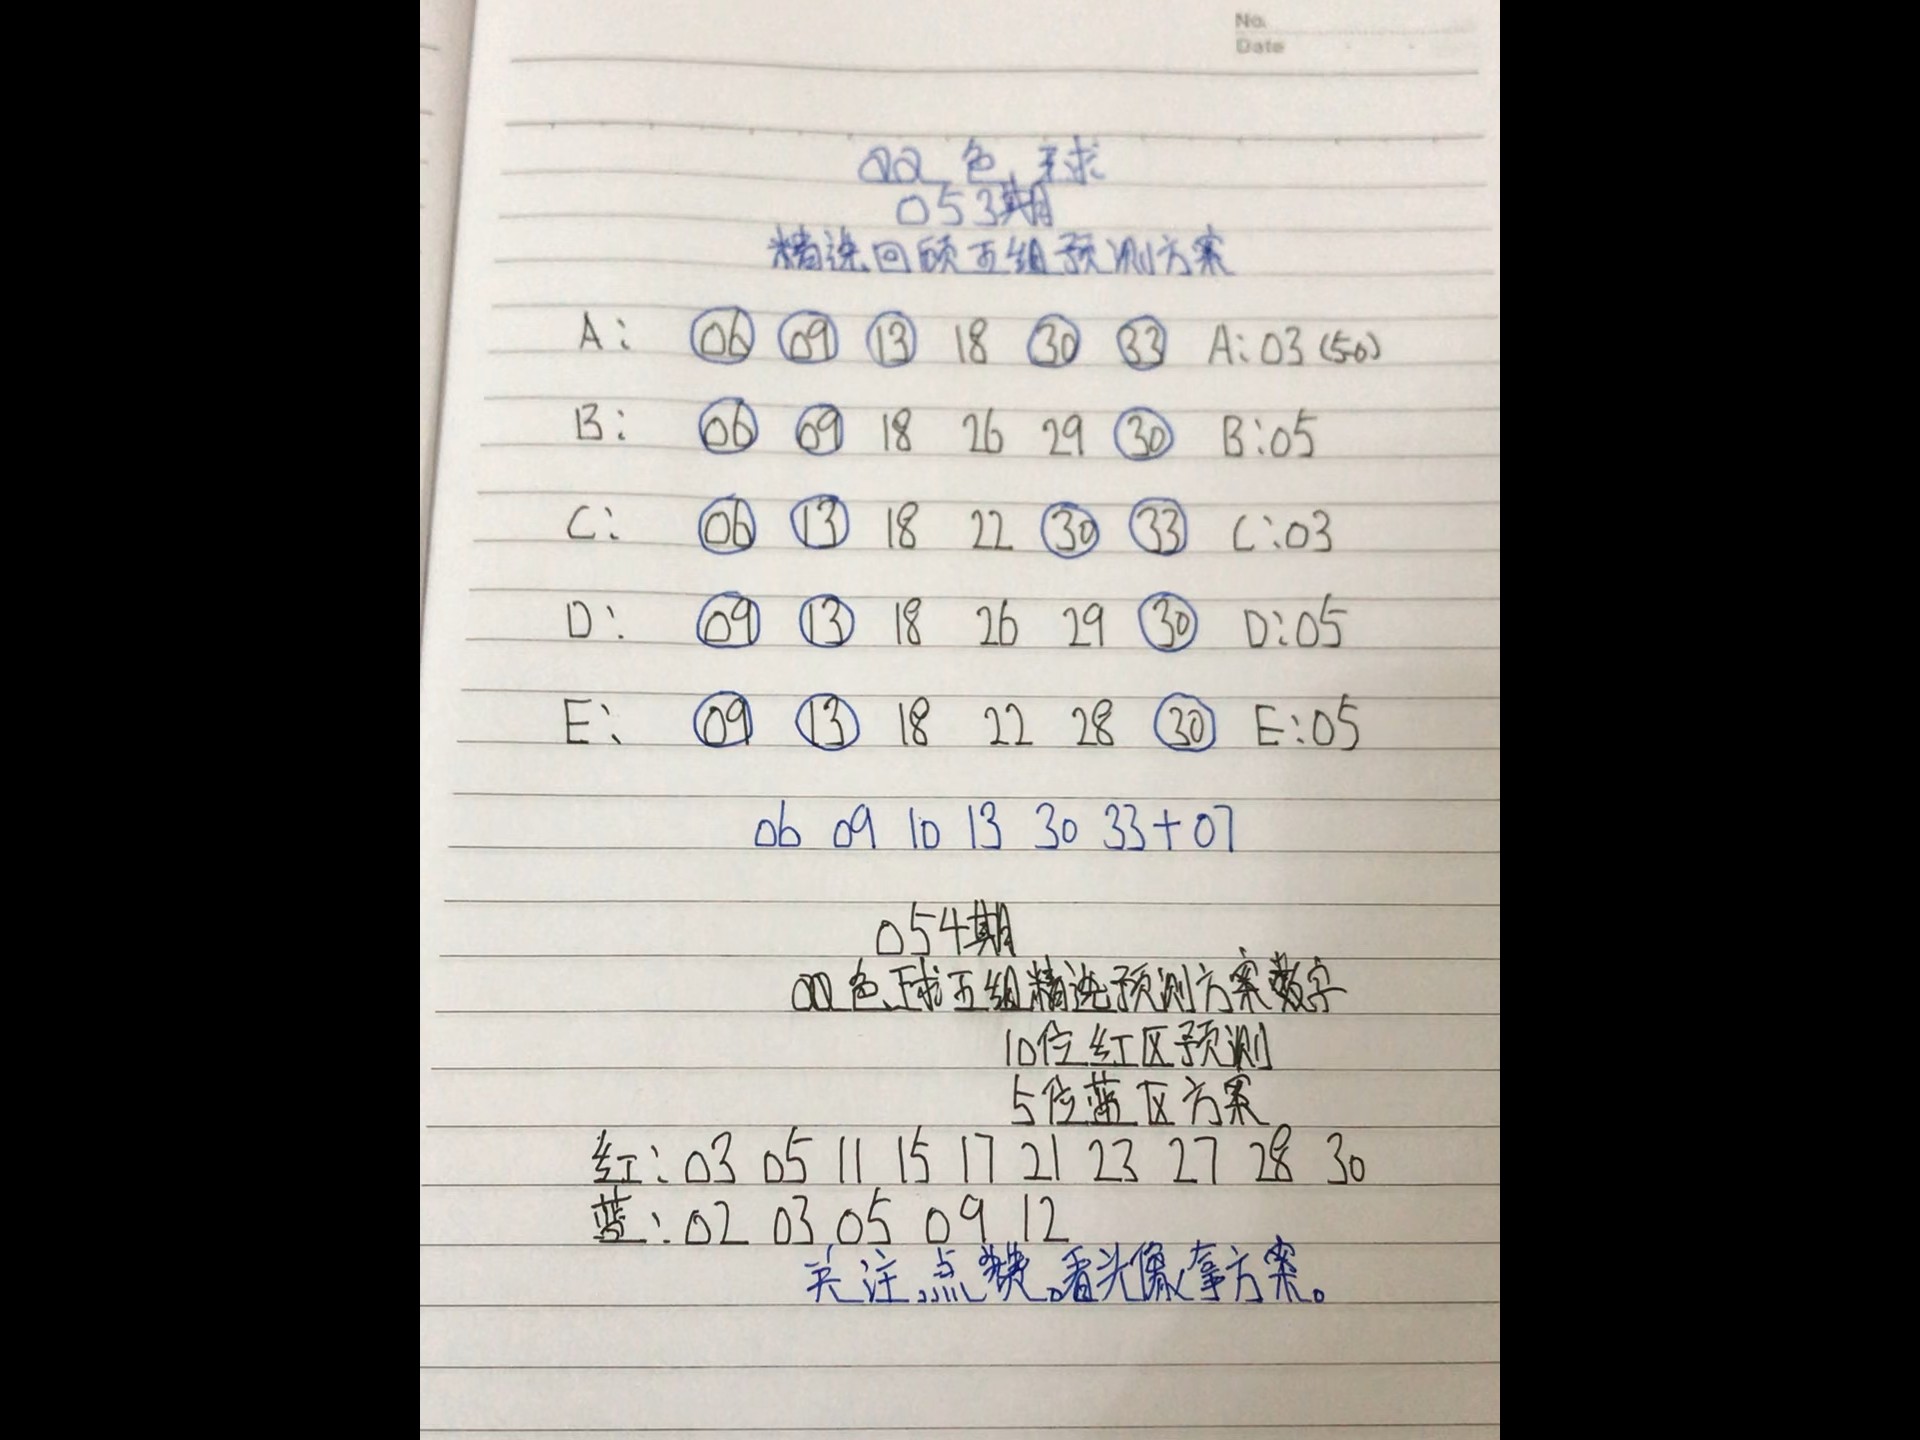 No.
Date
QQ色球
053期
精选回顾五组预测方案
A: 06 09 13 18 30 33 A:03(50)
B: 06 09 18 26 29 30 B:05
C: 06 13 18 22 30 33 C:03
D: 09 13 18 26 29 30 D:05
E: 09 13 18 22 28 30 E:05
06 09 10 13 30 33+07
054期
QQ色球五组精选预测方案数字
10位红区预测
5位蓝区方案
红: 03 05 11 15 17 21 23 27 28 30
蓝: 02 03 05 09 12
关注.点赞.看头像拿方案。